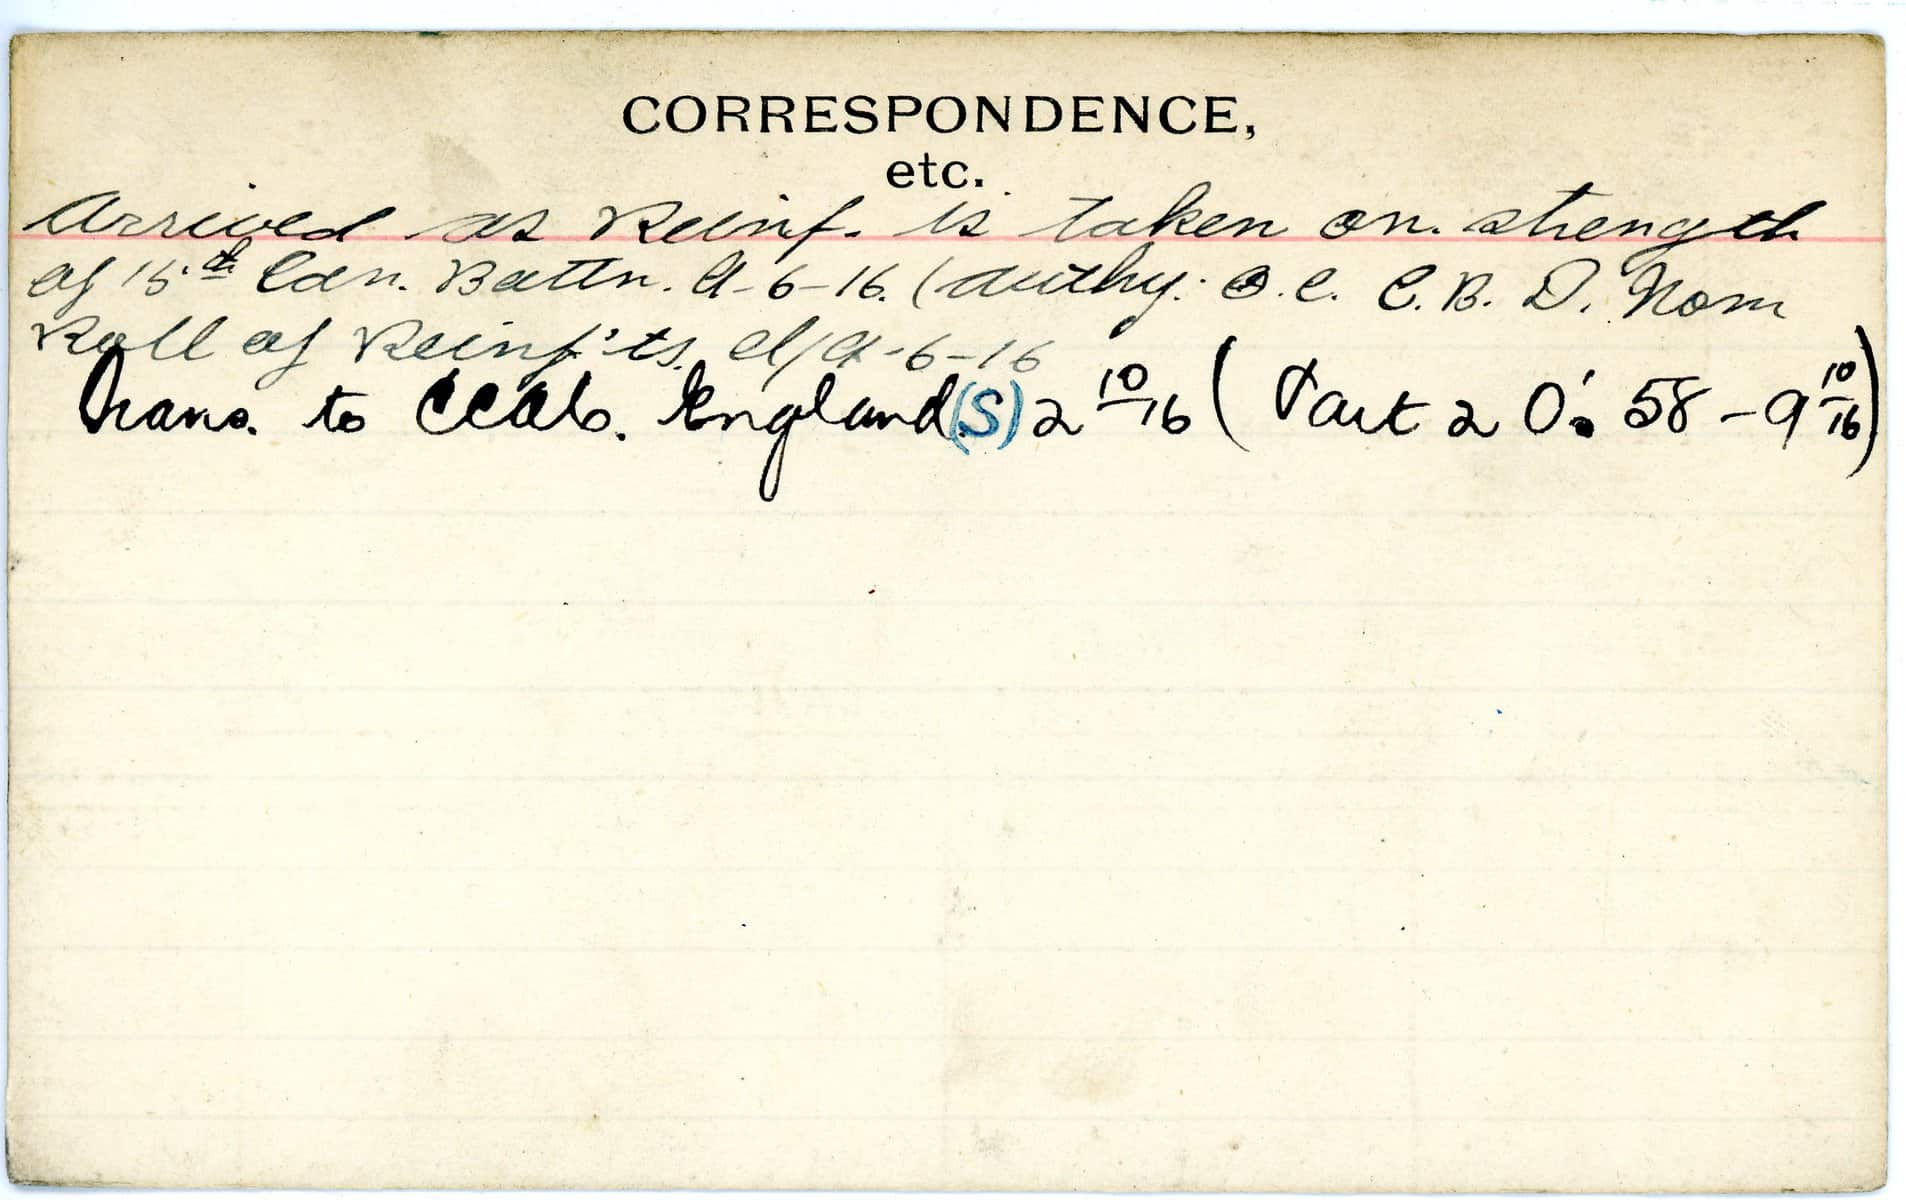 CORRESPONDENCE,
etc.
Arrived as Reinf. is taken on. strength
of 15th Can. Battn. 9-6-16. (Authy: O.C. C.B.D. Nom
Roll of Reinf'ts. d/9-6-16
Trans. to CCAC. England (S) 2 10/16 (Part 2 O's 58 - 9 10/16)